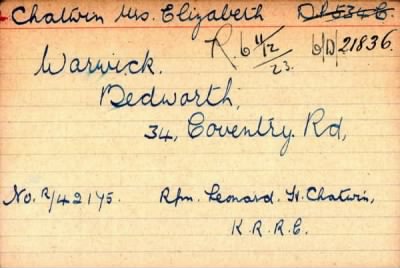 Chatwin Mrs. Elizabeth DP 534 E.
R. 6 11/12/23. 6/D/21836.
Warwick.
Bedworth,
34, Coventry Rd,
No. R/42175. Rfn. Leonard H. Chatwin,
K.R.R.C.